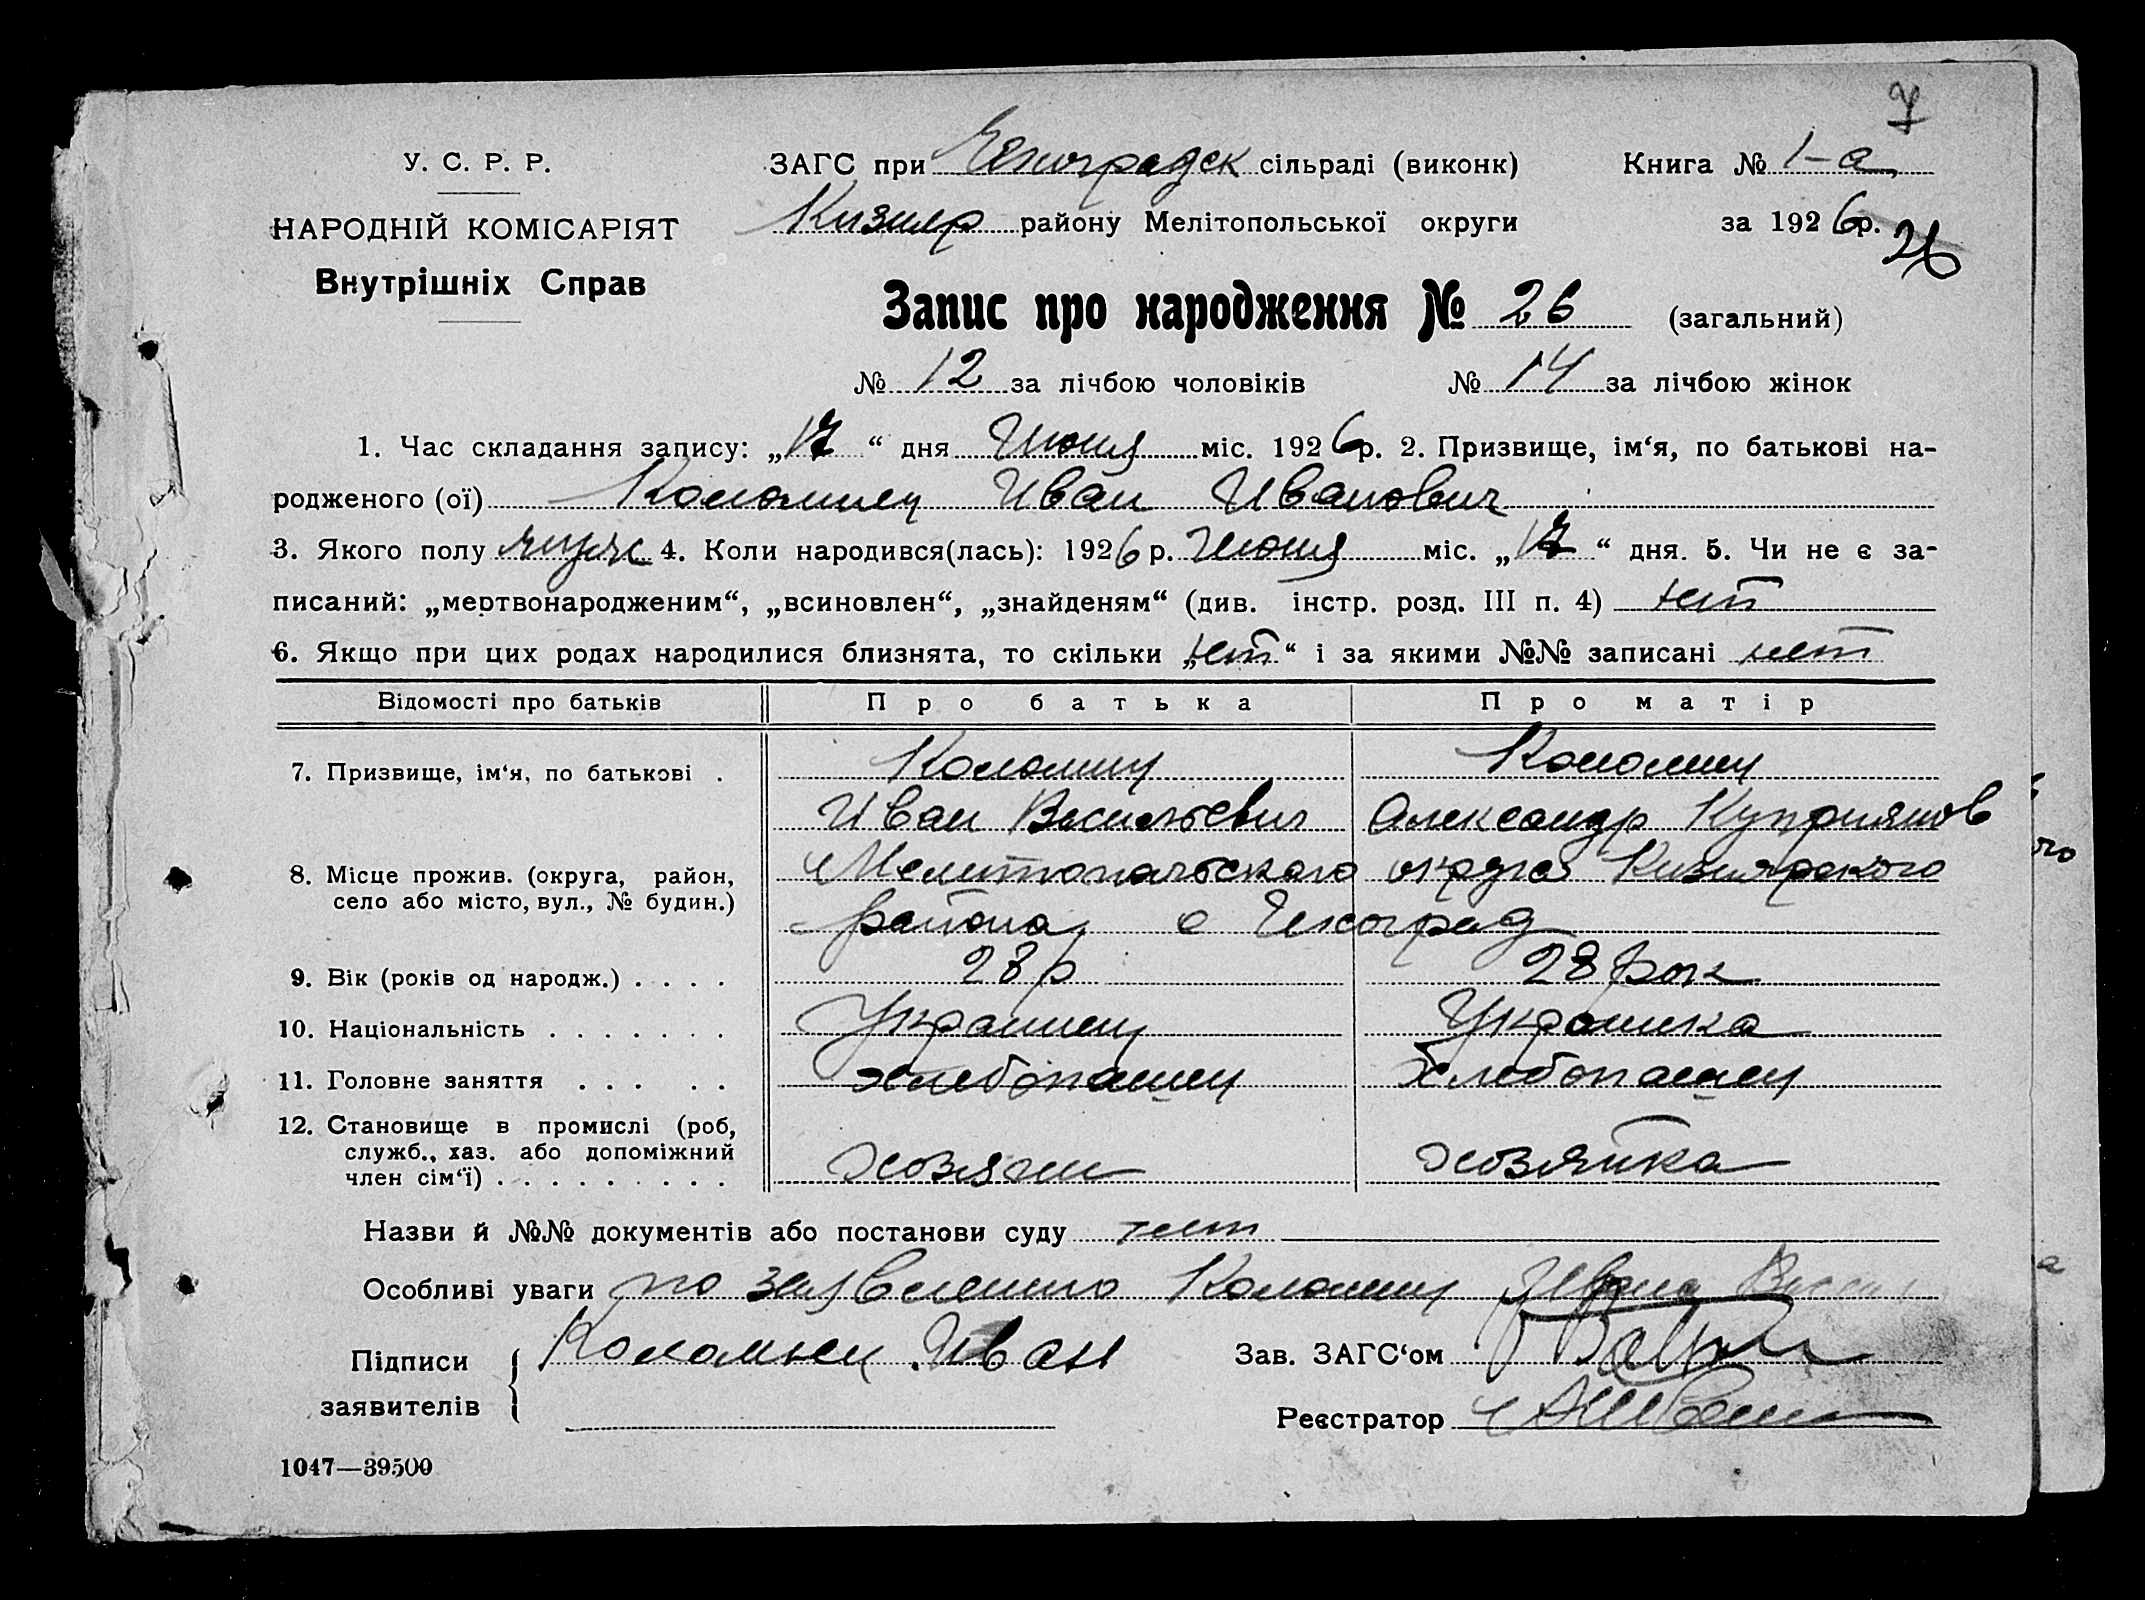 7
У. С. Р. Р.
ЗАГС при сільраді (виконк) Книга № 1-а
НАРОДНІЙ КОМІСАРІЯТ
Кизияр району Мелітопольської округи за 1926 р.
26
Внутрішніх Справ
Запис про народження № 26 (загальний)
№ 12 за лічбою чоловіків № 14 за лічбою жінок
1. Час складання запису: „17“ дня Июня міс. 1926 р. 2. Призвище, ім‘я, по батькові на-
родженого (ої) Коломиец Иван Иванович
3. Якого полу муж 4. Коли народився(лась): 1926 р. Июня міс. „17“ дня. 5. Чи не є за-
писаний: „мертвонародженим“, „всиновлен“, „знайденям“ (див. інстр. розд. III п. 4) нет
6. Якщо при цих родах народилися близнята, то скільки „нет“ і за якими №№ записані нет
Відомості про батьків Про батька Про матір
7. Призвище, ім‘я, по батькові . Коломиец Коломиец
Иван Васильевич Александр Куприянов
8. Місце прожив. (округа, район, Мелитопольского округа Кизиярского
село або місто, вул., № будин.)
района с
9. Вік (років од народж.) . . . . 28 р 28 рок
10. Національність . . . . . . . Украинец Украинка
11. Головне заняття . . . . . хлебопашец хлебопашец
12. Становище в промислі (роб,
служб., хаз. або допоміжний
член сім‘ї) . . . . . . . . . хозяин хозяйка
Назви й №№ документів або постанови суду нет
Особливі уваги по заявлению Коломиец Ивана
Підписи Коломиец Иван Зав. ЗАГС‘ом
заявителів Реєстратор
1047—39500